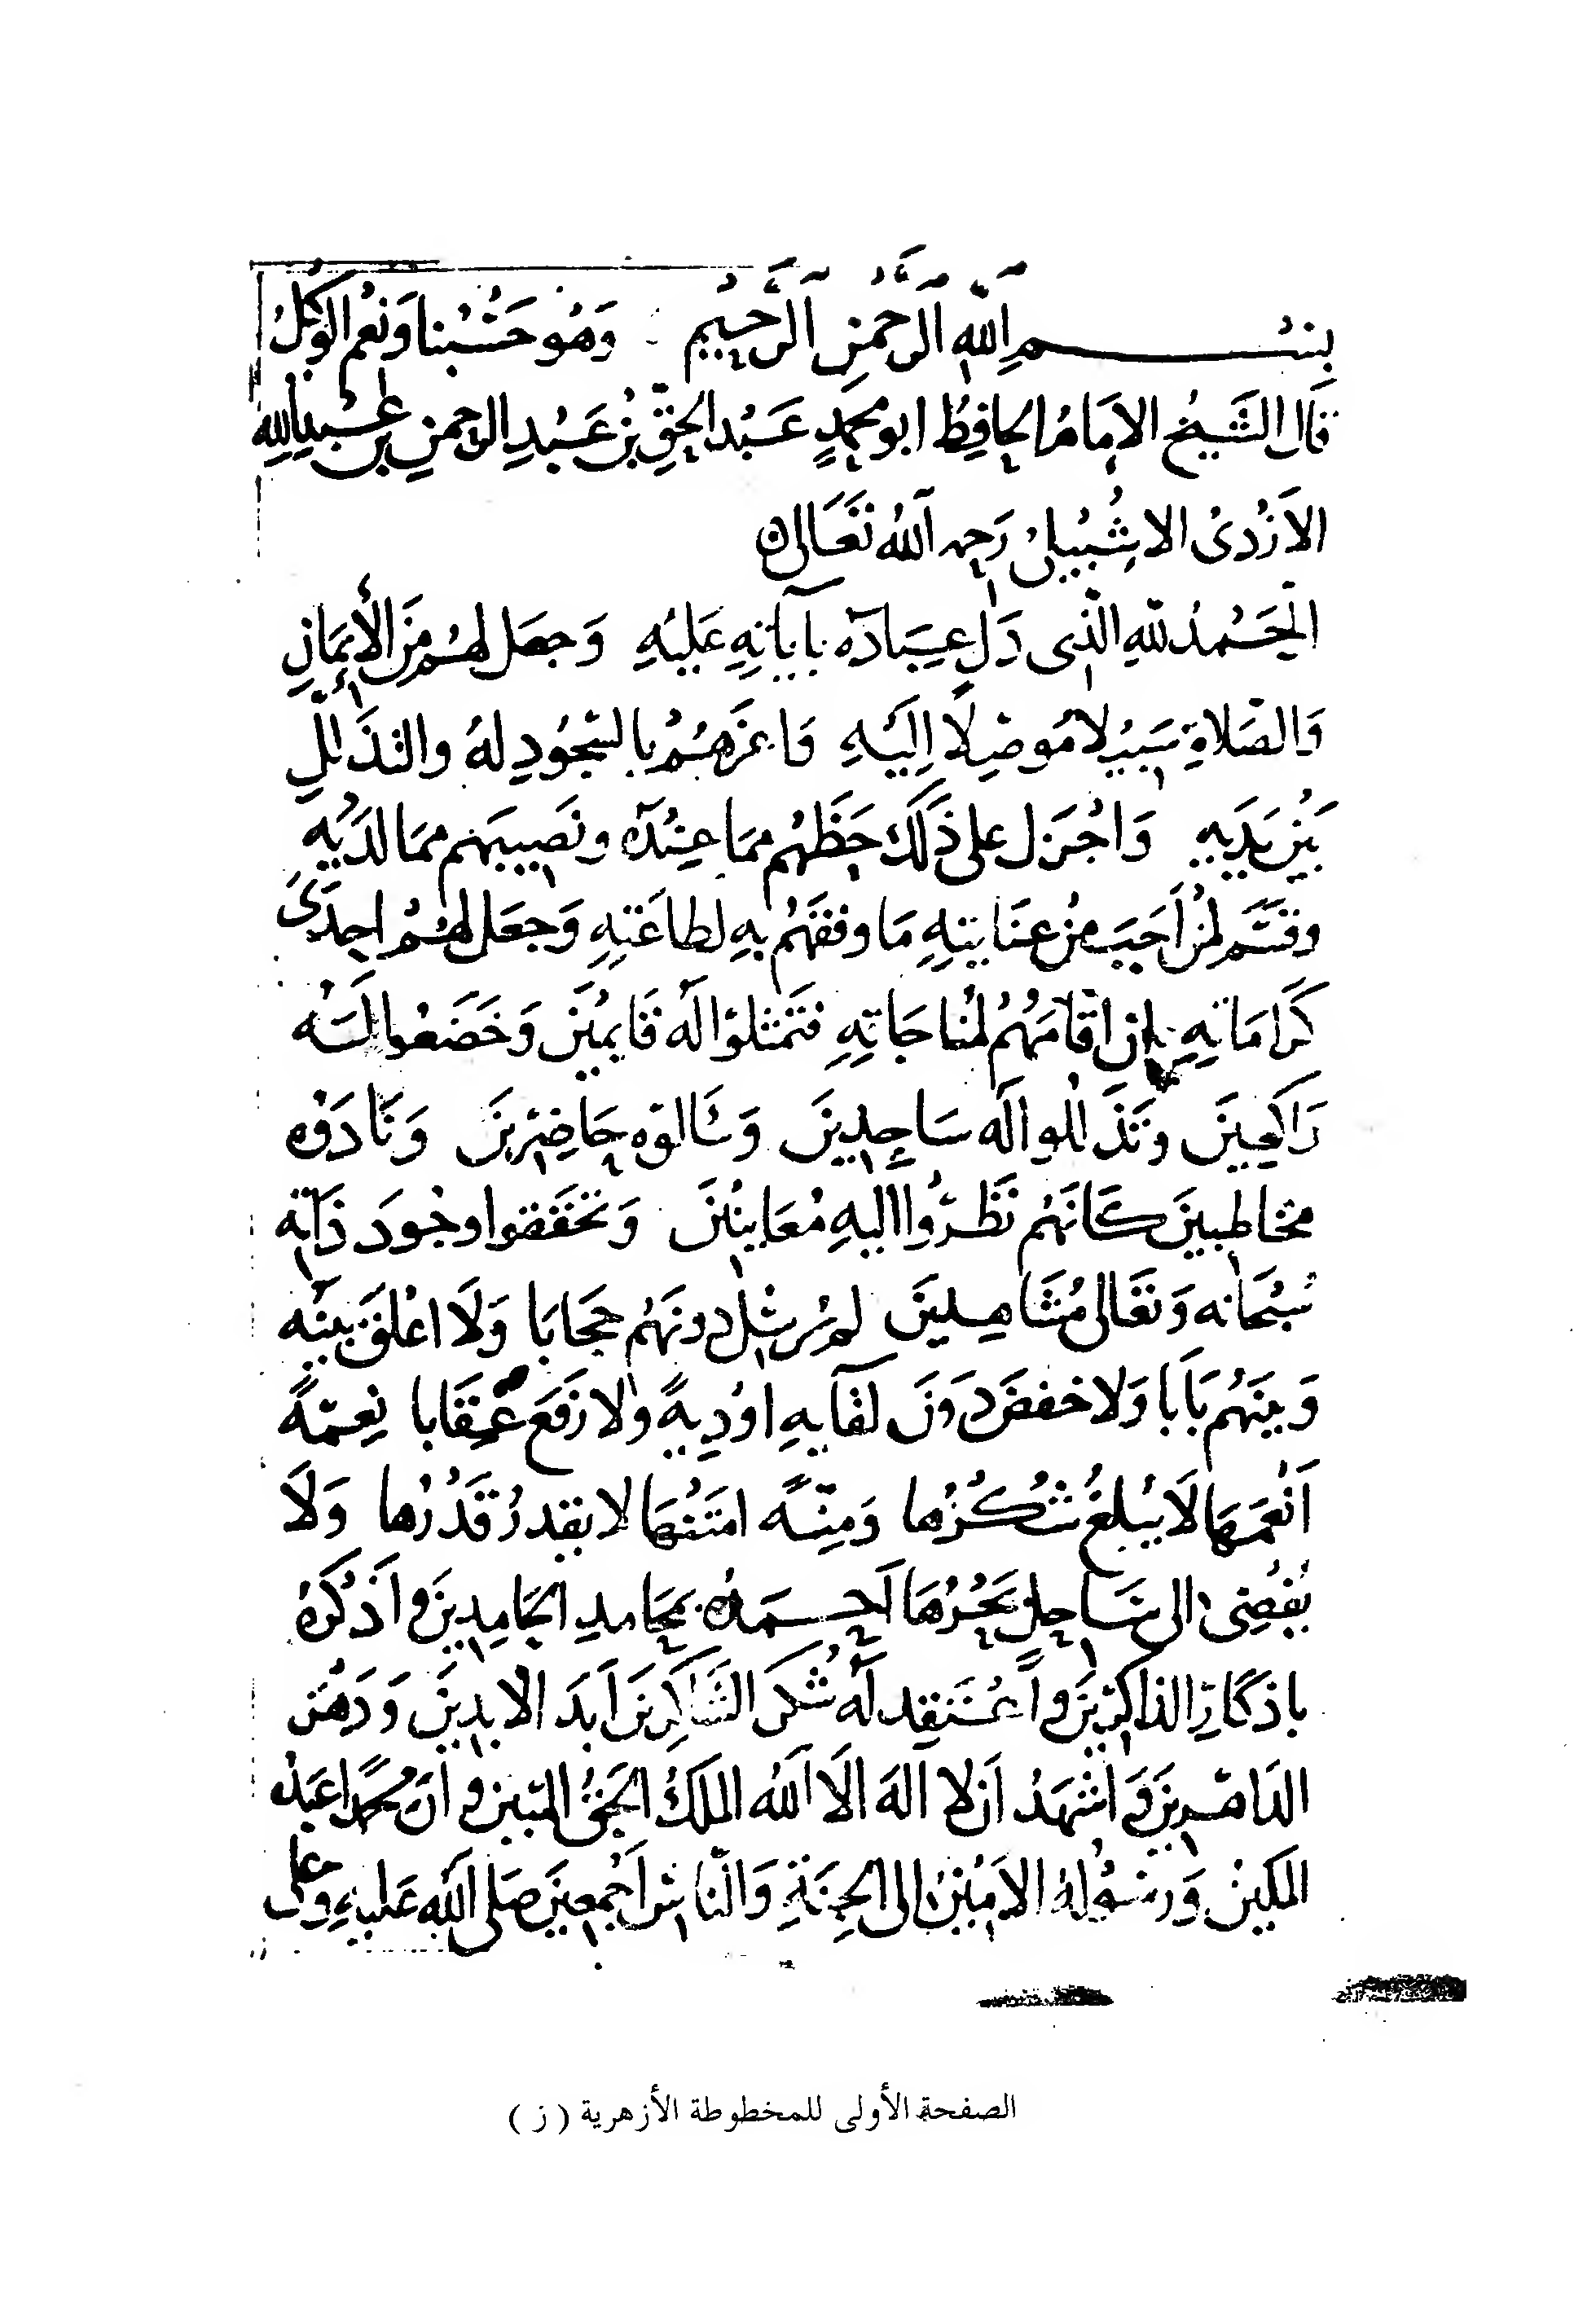 بِسْمِ اللهِ الرَّحْمَنِ الرَّحِيمِ وَهُو حَسْبُنا وَنِعْم الوَكيلُ
قال الشَّيخُ الامَامُ الحافِظُ ابو محمدٍ عَبْد الحَقِّ بْنُ عَبْدِ الرحمنِ بن عَبْدِ اللهِ
الاَزْدىْ الاشْبِيلىْ رَحِمه اللهُ تعَالى
الحَمْدُ للهِ الَّذِى دَل عِبَادَه بآيَاتِهِ عَليْهِ وَجعَل لهُمْ مِنَ الأيمَانِ
وَالصَّلاةِ سَبِيْلا مُوصِلًا اِليْهِ وَاعَزهُمْ بالسّجُودِ لهُ والتذَللِ
بَيْن يَدَيهِ وَاجْزَل على ذَلكَ حَظَهُم ممَا عِنْدَه ونَصيبَهم ممَا لدَيْهِ
وقسَّم لمنْ اَحَبَ مِنْ عِنَايتِهِ مَا وفقَهُم بهِ لطاعَتِهِ وَجعَل لهُمْ احدَى
كَرامَاتهِ بان اقامَهُمْ لمُناجَاتِهِ فتَمثلوْا لَه قَايمِيْنَ وَخَضَعُوا لَهُ
رَاكِعِينَ وتَذَللوا لَه سَاجِدِينَ وَسَالوْه حَاضِرِينَ وَنَادَوْه
مخاطِبِينَ كَانَهُم نَظَرُوا اليهِ مُعَاينِيْنَ وَتحَققوا وجُودَ ذَاتِه
سُبْحَانه وَتعَالى مُشَاهِدينَ لم يُرسِل دونَهُم حِجَابَا وَلَا اغْلقَ بينَه
وَبينَهُم بَابَا وَلا خفضَ دَونَ لقَايهِ اوْدِيةً ولا رَفعَ عِقَابا نِعمّةً
اَنْعَمهَا لَا يَبْلغُ شُكْرُها وَمِنّةً امتَنْهَا لا يقدرُ قَدْرُها وَلَا
يُفْضِى الى سَاحِلٍ بَحْرُهَا اَحمَدُه بمحَامدِ الحَامِدِينَ وَاَذْكُرهُ
باذكَارِ الذاكِرِينَ وَاَعْتَقِد لَه شُكرَ الشَاكِرِينَ اَبدَ الابِدِينَ وَدَهْرَ
الدَاهِرِينَ وَاشْهَدُ اَن لا الهَ الَا اللهُ الملكُ الحَقُّ المبين وان محمدًا عَبدُه
المكينُ وَرسُولهُ الامِيْنُ الى الجِنَةِ وَالنّاسِ اَجْمعِينَ صَلى اللهُ عَليْهِ وَعلى
الصفحة الأولى للمخطوطة الأزهرية ( ز )